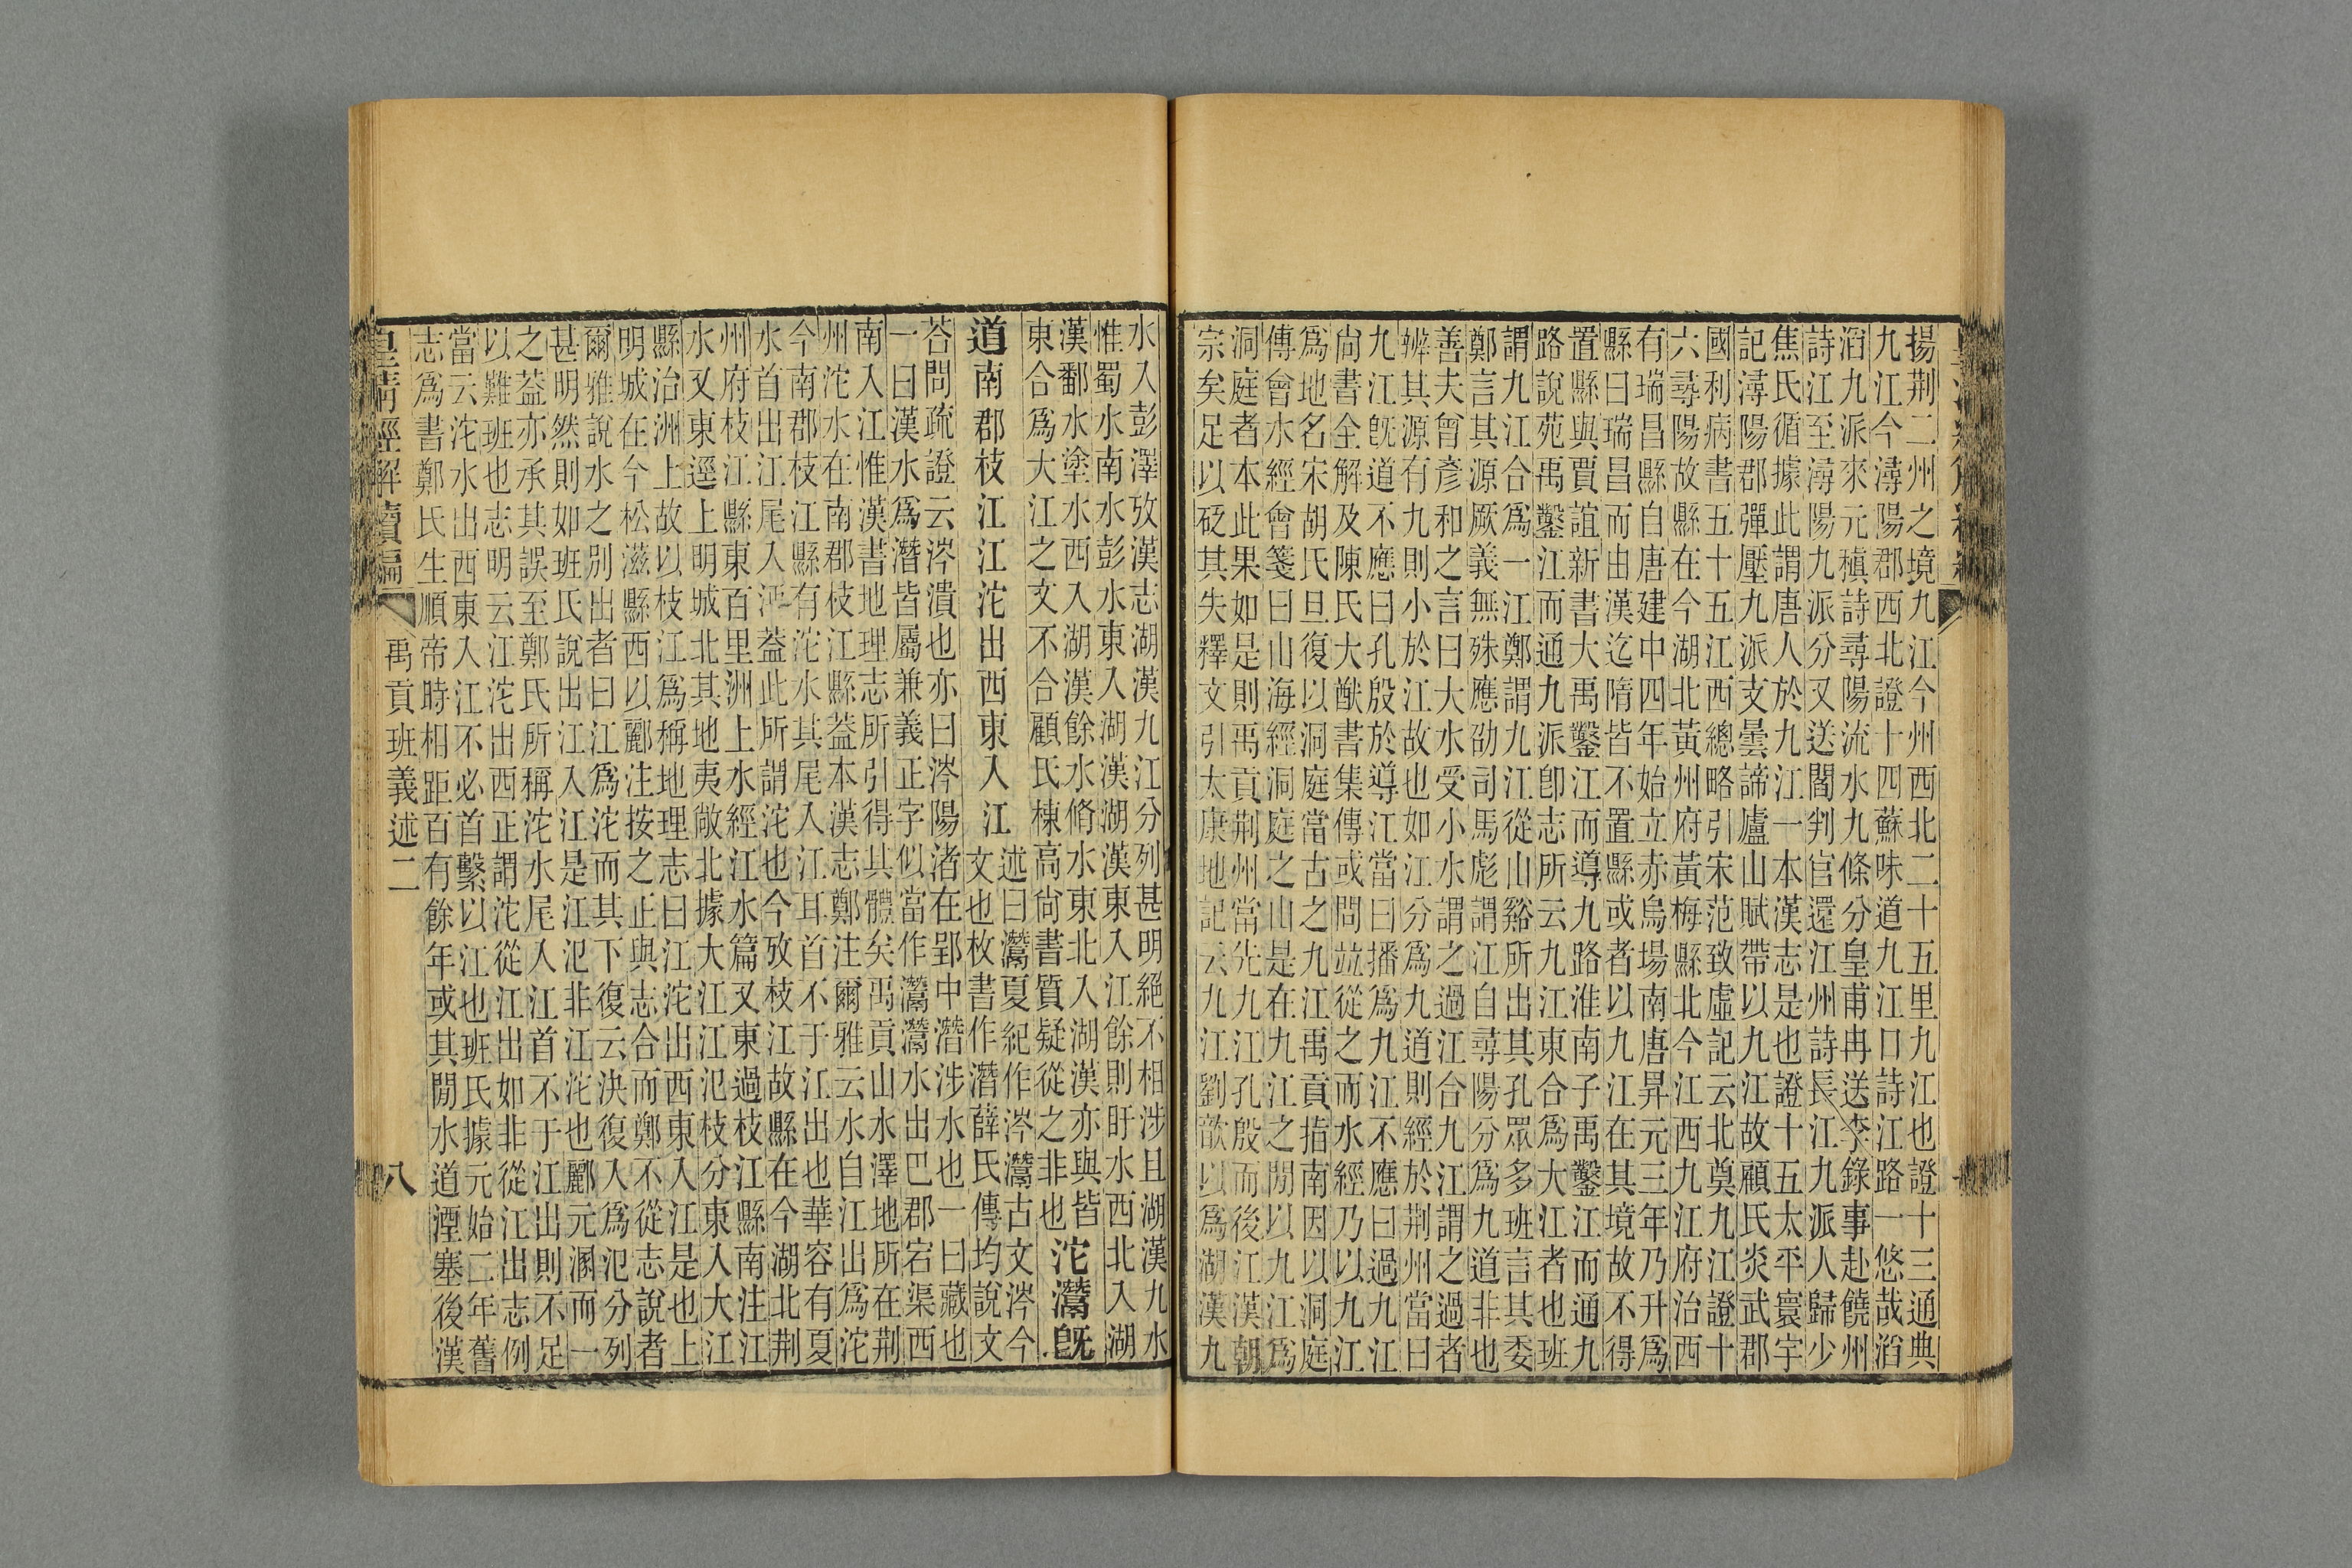 揚荆二州之境九江今州西北二十五里九江也證十三通典
九江今潯陽郡西北證十四蘇味道九江口詩江路一悠哉滔
滔九派來元稹詩尋陽流水九條分皇甫冉送李錄事赴饒州
詩江至潯陽九派分又送閻判官還江州詩長江九派人歸少
焦氏循據此謂唐人於九江一本漢志是也證十五太平寰宇
記潯陽郡彈壓九派支曇諦廬山賦帶以九江故顧氏炎武郡
國利病書五十五江西總略引宋范致虛記云北奠九江證十
六尋陽故縣在今湖北黃州府黃梅縣北今江西九江府治西
有瑞昌縣自唐建中四年始立赤烏場南唐昇元三年乃升爲
縣曰瑞昌而由漢迄隋皆不置縣或者以九江在其境故不得
置縣與賈誼新書大禹鑿江而導九路淮南子禹鑿江而通九
路說苑禹鑿江而通九派卽志所云九江東合爲大江者也班
謂九江合爲一江鄭謂九江從山谿所出其孔眾多班言其委
鄭言其源厥義無殊應劭司馬彪謂江自尋陽分爲九道非也
善夫曾彥和之言曰大水受小水謂之過江合九江謂之過者
辨其源有九則小於江故也如江分爲九道則經於荆州當曰
九江旣道不應曰孔殷於導江當曰播爲九江不應曰過九江
尙書全解及陳氏大猷書集傳或問竝從之而水經乃以九江
爲地名宋胡氏旦復以洞庭當古之九江禹貢指南因以洞庭
傳會水經會箋曰山海經洞庭之山是在九江之閒以九江爲
洞庭者本此果如是則禹貢荆州當先九江孔殷而後江漢朝
宗矣足以砭其失釋文引太康地記云九江劉歆以爲湖漢九
水入彭澤攷漢志湖漢九江分列甚明絕不相涉且湖漢九水
惟蜀水南水彭水東入湖漢湖漢東入江餘則盱水西北入湖
漢鄱水塗水西入湖漢餘水脩水東北入湖漢亦與皆
東合爲大江之文不合顧氏棟高尙書質疑從之非也沱灊旣
道南郡枝江江沱出西東入江述曰灊夏紀作涔灊古文涔今
文也枚書作潛薛氏傳均說文
荅問疏證云涔潰也亦曰涔陽渚在郢中潛涉水也一曰藏也
一曰漢水爲潛皆屬兼義正字似當作灊灊水出巴郡宕渠西
南入江惟漢書地理志所引得其體矣禹貢山水澤地所在荆
州沱水在南郡枝江縣蓋本漢志鄭注爾雅云水自江出爲沱
今南郡枝江縣有沱水其尾入江耳首不于江出也華容有夏
水首出江尾入沔蓋此所謂沱也今攷枝江故縣在今湖北荆
州府枝江縣東百里洲上水經江水篇又東過枝江縣南注江
水又東逕上明城北其地夷敞北據大江江汜枝分東入大江
縣治洲上故以枝江爲稱地理志曰江沱出西東入江是也上
明城在今松滋縣西以酈注按之正與志合而鄭不從志說者
爾雅說水之別出者曰江爲沱而其下復云決復入爲汜分列
甚明然則如班氏說出江入江是江汜非江沱也酈元溷而一
之蓋亦承其誤至鄭氏所稱沱水尾入江首不于江出則不足
以難班也志明云江沱出西正謂沱從江出如非從江出志例
當云沱水出西東入江不必首繫以江也班氏據元始二年舊
志爲書鄭氏生順帝時相距百有餘年或其閒水道湮塞後漢
皇淸經解續編
禹貢班義述二
八